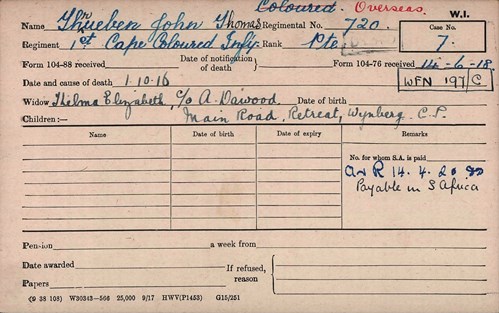 Coloured. Overseas. W.I.
Name Thrueben John Thomas Regimental No. 720. Case No.
Regiment 1st Cape Coloured Infy Rank Pte 7.
Form 104-88 received Date of notification of death Form 104-76 received 14-6-18
Date and cause of death 1.10.16 WFN 197/C
Widow Thelma Elizabeth, C/o A. Dawood. Date of birth
Children:— Main Road, Retreat, Wynberg. C.P.
Name Date of birth Date of expiry Remarks
No. for whom S.A. is paid
A & R 14.4.20
Payable in S Africa
Pension a week from
Date awarded If refused, reason
Papers
(9 38 108) W30343—566 25,000 9/17 HWV(P1453) G15/251